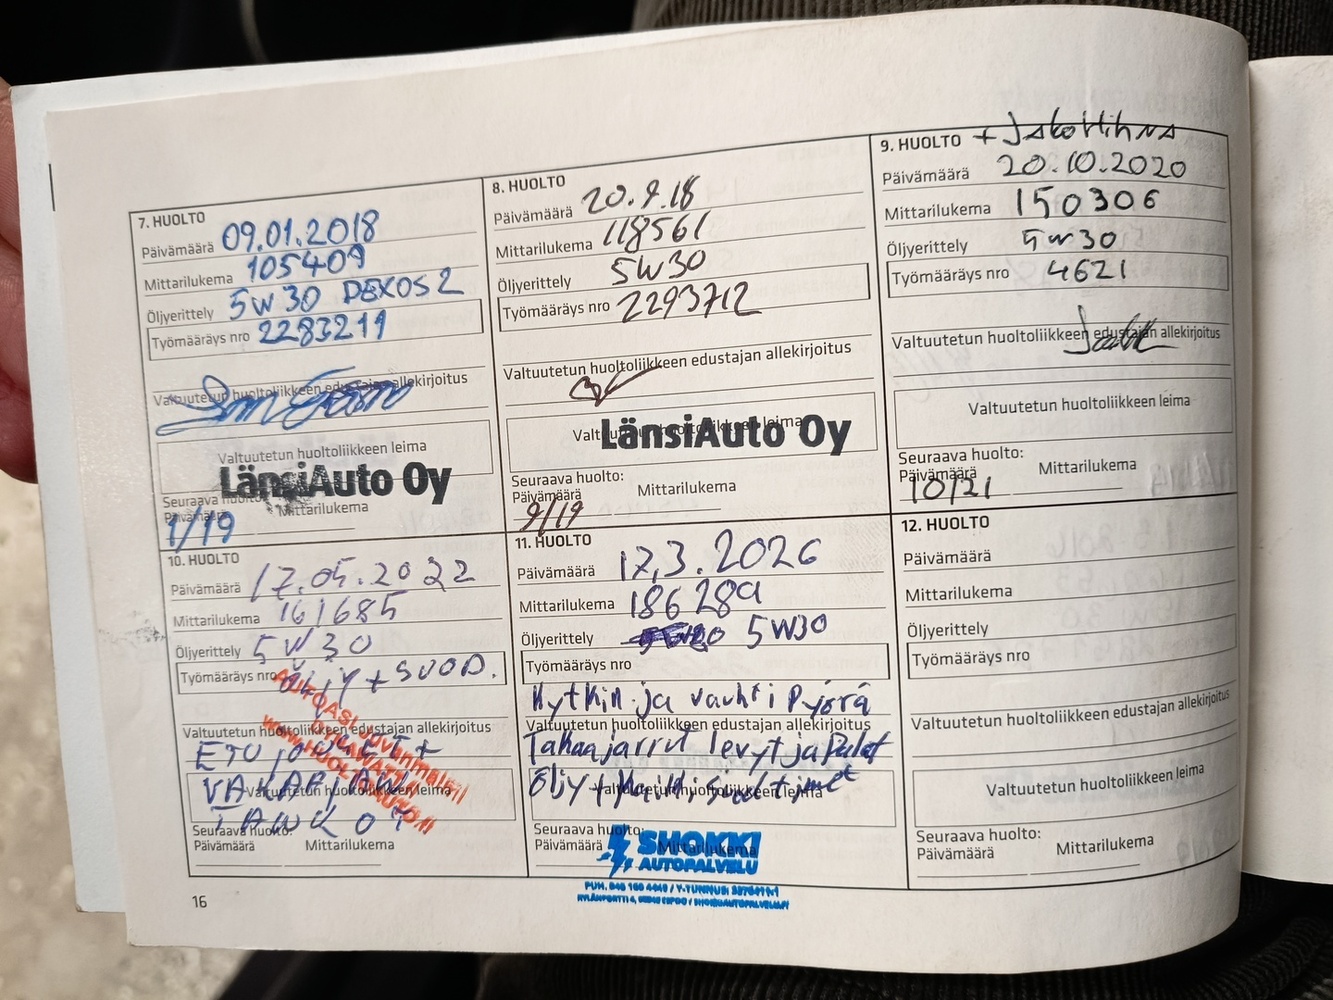 7. HUOLTO
Päivämäärä 09.01.2018
Mittarilukema 105409
Öljyerittely 5W30 DEXOS2
Työmääräys nro 2283211
Valtuutetun huoltoliikkeen edustajan allekirjoitus
Valtuutetun huoltoliikkeen leima
LänsiAuto Oy
Seuraava huolto:
Päivämäärä Mittarilukema
1/19
8. HUOLTO
Päivämäärä 20.9.18
Mittarilukema 118561
Öljyerittely 5W30
Työmääräys nro 2293712
Valtuutetun huoltoliikkeen edustajan allekirjoitus
Valtuutetun huoltoliikkeen leima
LänsiAuto Oy
Seuraava huolto:
Päivämäärä Mittarilukema
9/19
9. HUOLTO + Jakohihna
Päivämäärä 20.10.2020
Mittarilukema 150306
Öljyerittely 5w30
Työmääräys nro 4621
Valtuutetun huoltoliikkeen edustajan allekirjoitus
Valtuutetun huoltoliikkeen leima
Seuraava huolto:
Päivämäärä Mittarilukema
10/21
10. HUOLTO
Päivämäärä 17.05.2022
Mittarilukema 161685
Öljyerittely 5W30
Työmääräys nro ÖLJY + SUOD.
Valtuutetun huoltoliikkeen edustajan allekirjoitus
ETU
Valtuutetun huoltoliikkeen leima
Seuraava huolto:
Päivämäärä Mittarilukema
11. HUOLTO
Päivämäärä 17.3.2026
Mittarilukema 186289
Öljyerittely 5W30
Työmääräys nro
Kytkin ja vauhtipyörä
Valtuutetun huoltoliikkeen edustajan allekirjoitus
Takaajarrut levyt ja Palat
Öljy + Kaikki suodatimet
Valtuutetun huoltoliikkeen leima
Seuraava huolto:
Päivämäärä Mittarilukema
SHOKKI
AUTOPALVELU
12. HUOLTO
Päivämäärä
Mittarilukema
Öljyerittely
Työmääräys nro
Valtuutetun huoltoliikkeen edustajan allekirjoitus
Valtuutetun huoltoliikkeen leima
Seuraava huolto:
Päivämäärä Mittarilukema
16